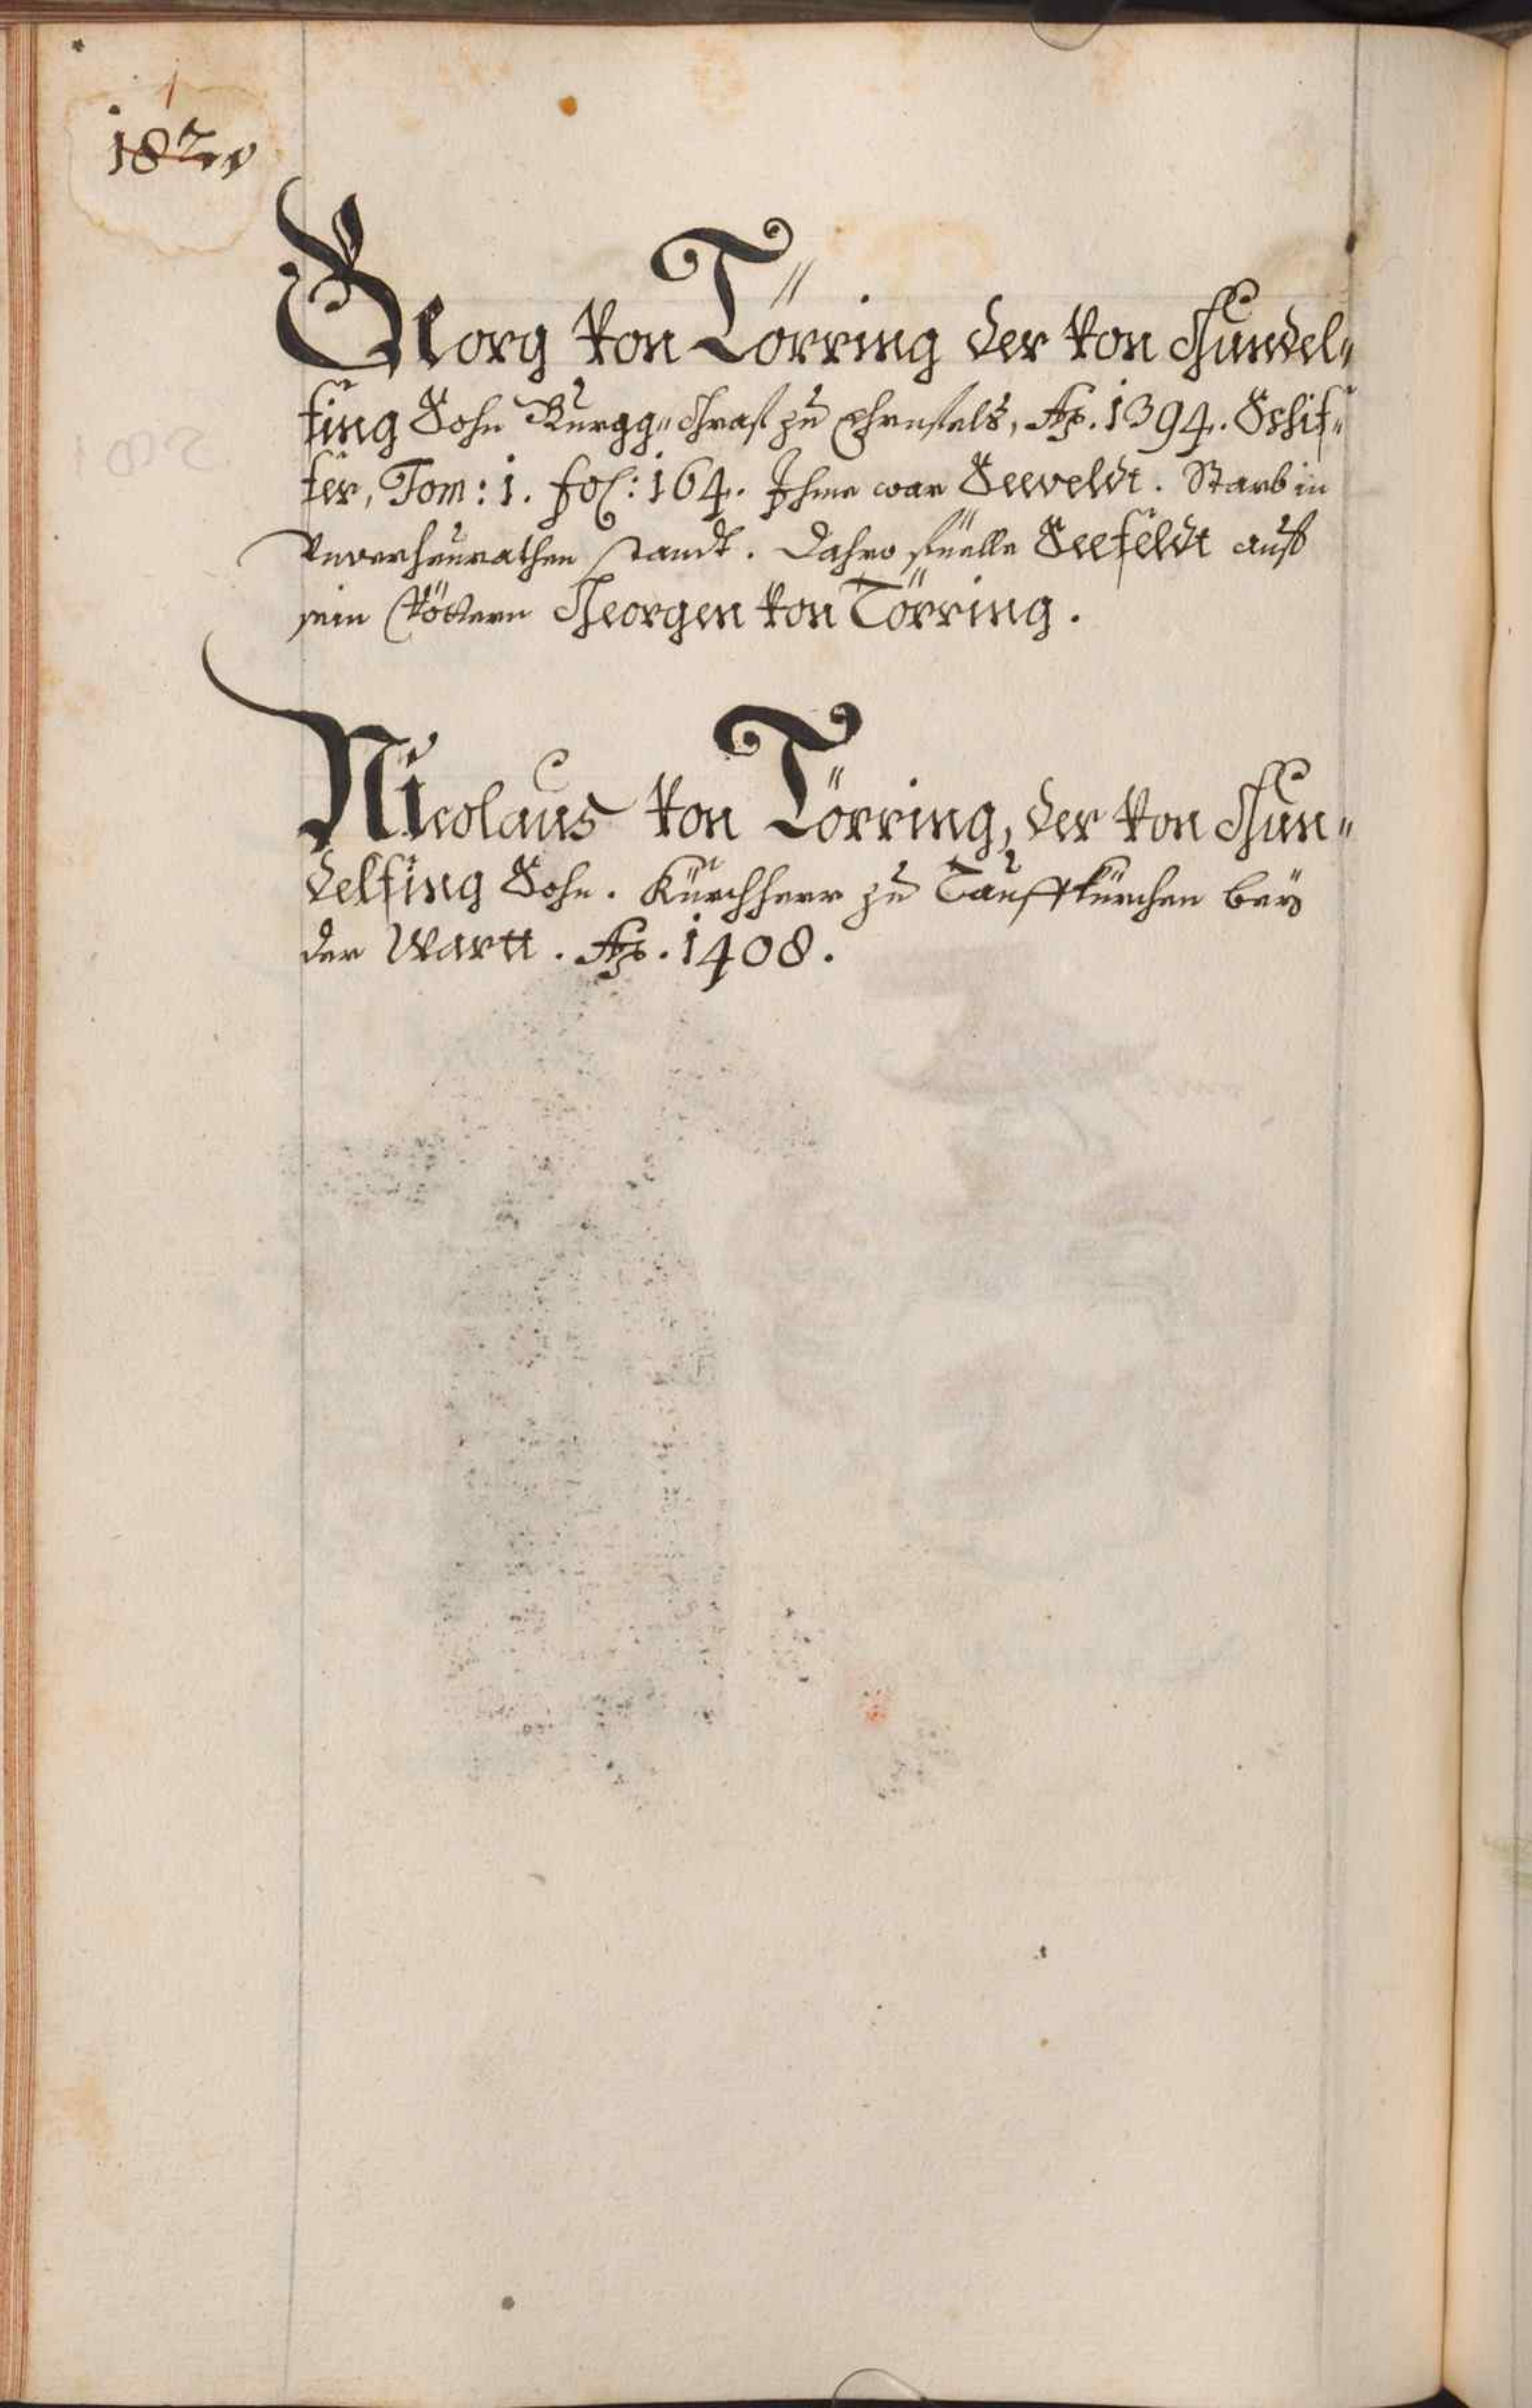 182v
Georg von Törring der von Gundel„
fing Sohn Burgg„Graf zu Ehrnfels, Ao. 1394. Schif„
fer, Tom: 1. fol: 164. Ihme war Seeveldt. Starb in
Unverheurathen standt. Dahero fiele Seefeldt auf
sein Vöttern Georgen von Törring.
Nicolaus von Törring, der von Gun„
delfing Sohn. Kürchherr zu Tauffkürchen bey
der Wartt. Ao. 1408.